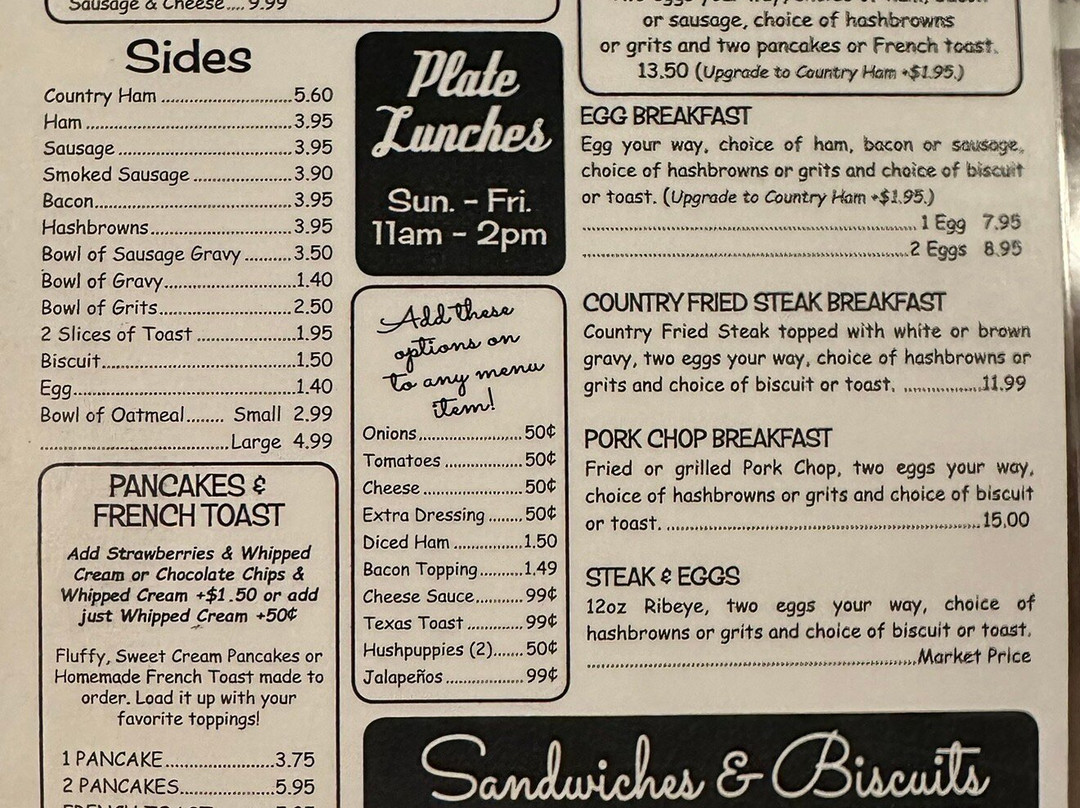 Sausage & Cheese.... 9.99
Sides
Country Ham ..............................5.60
Ham ................................................3.95
Sausage ........................................3.95
Smoked Sausage .......................3.90
Bacon..............................................3.95
Hashbrowns..................................3.95
Bowl of Sausage Gravy ..........3.50
Bowl of Gravy..............................1.40
Bowl of Grits...............................2.50
2 Slices of Toast ......................1.95
Biscuit............................................1.50
Egg...................................................1.40
Bowl of Oatmeal........ Small 2.99
...........................................Large 4.99
PANCAKES &
FRENCH TOAST
Add Strawberries & Whipped
Cream or Chocolate Chips &
Whipped Cream +$1.50 or add
just Whipped Cream +50¢
Fluffy, Sweet Cream Pancakes or
Homemade French Toast made to
order. Load it up with your
favorite toppings!
1 PANCAKE.........................3.75
2 PANCAKES......................5.95
Plate
Lunches
Sun. - Fri.
11am - 2pm
Add these
options on
to any menu
item!
Onions........................50¢
Tomatoes ..................50¢
Cheese .......................50¢
Extra Dressing ........50¢
Diced Ham ................1.50
Bacon Topping..........1.49
Cheese Sauce...........99¢
Texas Toast .............99¢
Hushpuppies (2)......50¢
Jalapeños ..................99¢
or sausage, choice of hashbrowns
or grits and two pancakes or French toast.
13.50 (Upgrade to Country Ham +$1.95.)
EGG BREAKFAST
Egg your way, choice of ham, bacon or sausage,
choice of hashbrowns or grits and choice of biscuit
or toast. (Upgrade to Country Ham +$1.95.)
..........................................................................1 Egg 7.95
........................................................................2 Eggs 8.95
COUNTRY FRIED STEAK BREAKFAST
Country Fried Steak topped with white or brown
gravy, two eggs your way, choice of hashbrowns or
grits and choice of biscuit or toast. .................11.99
PORK CHOP BREAKFAST
Fried or grilled Pork Chop, two eggs your way,
choice of hashbrowns or grits and choice of biscuit
or toast. ....................................................................15.00
STEAK & EGGS
12oz Ribeye, two eggs your way, choice of
hashbrowns or grits and choice of biscuit or toast.
.........................................................................Market Price
Sandwiches & Biscuits